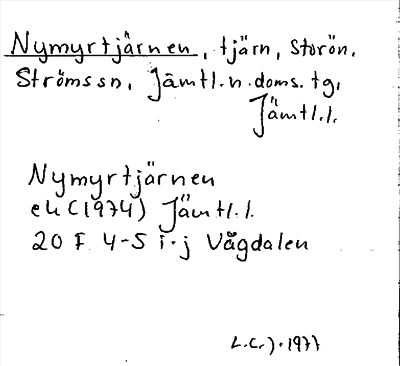 Nymyrtjärnen, tjärn, Storön.
Ströms sn, Jämtl.n.doms.tg,
Jämtl.l.
Nymyrtjärnen
ek (1974) Jämtl.l.
20 F 4-5 i-j Vågdalen
1977